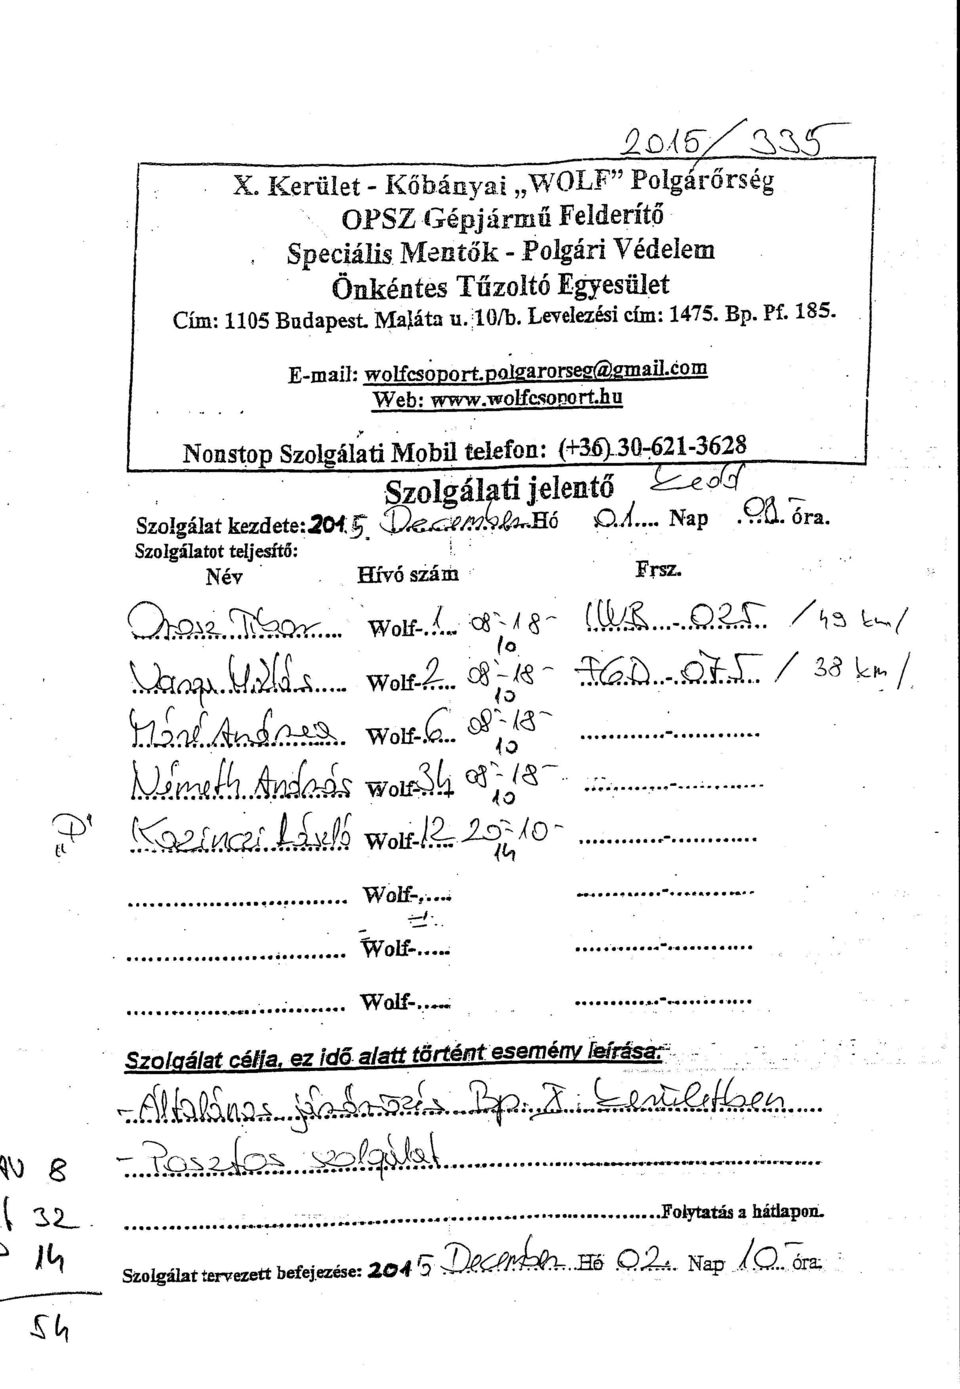 2015/335
X. Kerület - Kőbányai „WOLF” Polgárőrség
OPSZ Gépjármű Felderítő
Speciális Mentők - Polgári Védelem
Önkéntes Tűzoltó Egyesület
Cím: 1105 Budapest. Maláta u. 10/b. Levelezési cím: 1475. Bp. Pf. 185.
E-mail: wolfcsoport.polgarorseg@gmail.com
Web: www.wolfcsoport.hu
Nonstop Szolgálati Mobil telefon: (+36) 30-621-3628
Szolgálati jelentő Kedd
Szolgálat kezdete: 2015. December Hó 01.... Nap .08. óra.
Szolgálatot teljesítő:
Név Hívó szám Frsz.
Orosz Tibor Wolf-1 08-18- -025 /49 km/
10
Miklós Wolf-2 08-18- FGD-075 / 38 km/
10
Móré Andrea Wolf-6 08-18-
10
Németh András Wolf-34 08-18-
10
„P” Kazinczi László Wolf-12 20-10-
14
Wolf-.....
Wolf-.....
Wolf-.....
Szolgálat célja, ez idő alatt történt esemény leírása:
- Általános járőrözés Bp. X. kerületben
- Posztos szolgálat
8
32
14
54
Folytatás a hátlapon.
Szolgálat tervezett befejezése: 2015 December Hó 02. Nap 10 óra.